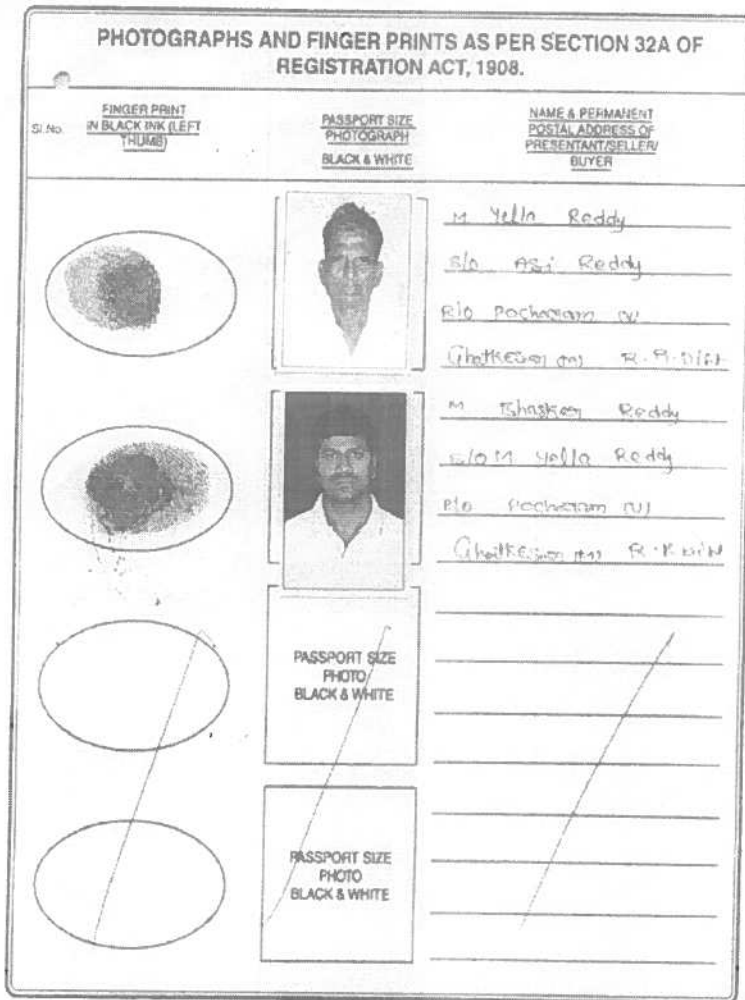 PHOTOGRAPHS AND FINGER PRINTS AS PER SECTION 32A OF
REGISTRATION ACT, 1908.
Sl.No.
FINGER PRINT
IN BLACK INK (LEFT
THUMB)
PASSPORT SIZE
PHOTOGRAPH
BLACK & WHITE
NAME & PERMANENT
POSTAL ADDRESS OF
PRESENTANT/SELLER/
BUYER
M Yella Reddy
S/o Asi Reddy
R/o Pocharam (V)
Ghatkesar (M) R.R. Dist
M Bhasker Reddy
S/o M Yella Reddy
R/o Pocharam (V)
Ghatkesar (M) R.R Dist
PASSPORT SIZE
PHOTO
BLACK & WHITE
PASSPORT SIZE
PHOTO
BLACK & WHITE